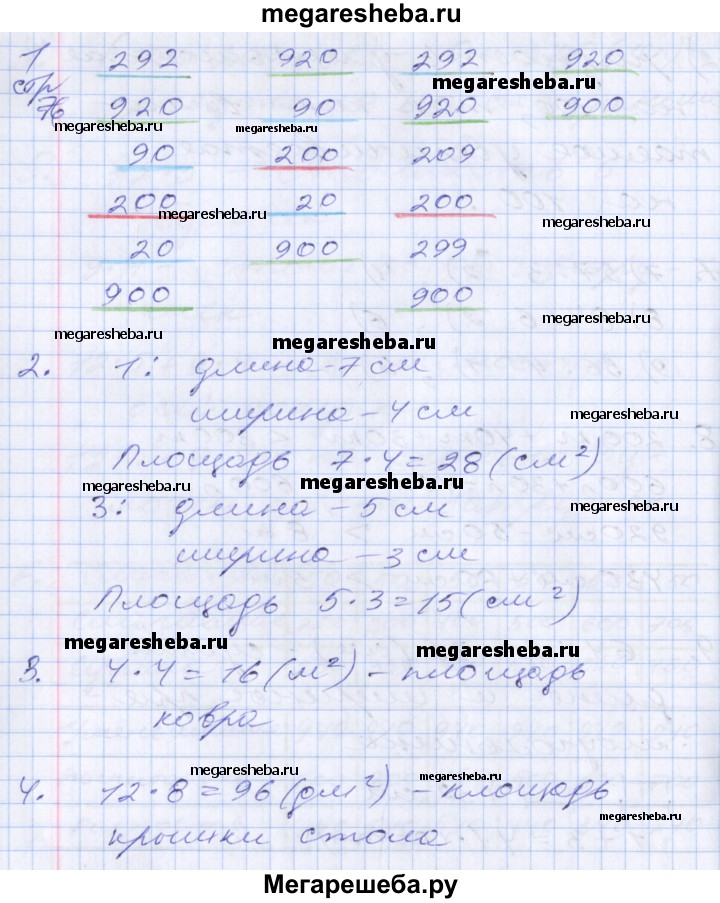 megaresheba.ru
1 292 920 292 920
стр megaresheba.ru
76 920 90 920 900
megaresheba.ru megaresheba.ru megaresheba.ru
90 200 209
200 20 200
megaresheba.ru megaresheba.ru
20 900 299
900 900
megaresheba.ru megaresheba.ru megaresheba.ru
2. 1: длина - 7 см
ширина - 4 см
megaresheba.ru
Площадь 7 · 4 = 28 (см²)
megaresheba.ru megaresheba.ru
3: длина - 5 см
megaresheba.ru
ширина - 3 см
Площадь 5 · 3 = 15 (см²)
megaresheba.ru megaresheba.ru
3. 4 · 4 = 16 (м²) - площадь
ковра
megaresheba.ru megaresheba.ru
4. 12 · 8 = 96 (дм²) - площадь
megaresheba.ru
крышки стола.
Мегарешеба.ру